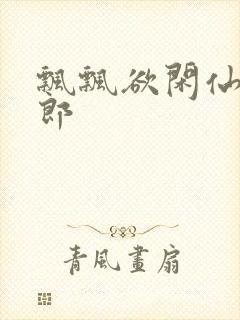 飄飄欲閑仙
郎
青風畫扇